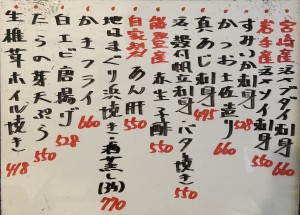 宮崎産 活〆ブダイ刺身 550
岩手産 活〆ソイ刺身 660
すみいか刺身 550
かつお土佐造り 528
真あじ刺身 495
活〆殻付帆立刺身・バタ焼き 550
能登産 赤生子酢 550
自家製 あん肝 550
地はまぐり浜焼き・酒蒸し(3ヶ) 770
かきフライ 660
白エビ唐揚げ 528
たらの芽天ぷら 550
生椎茸ホイル焼き 418